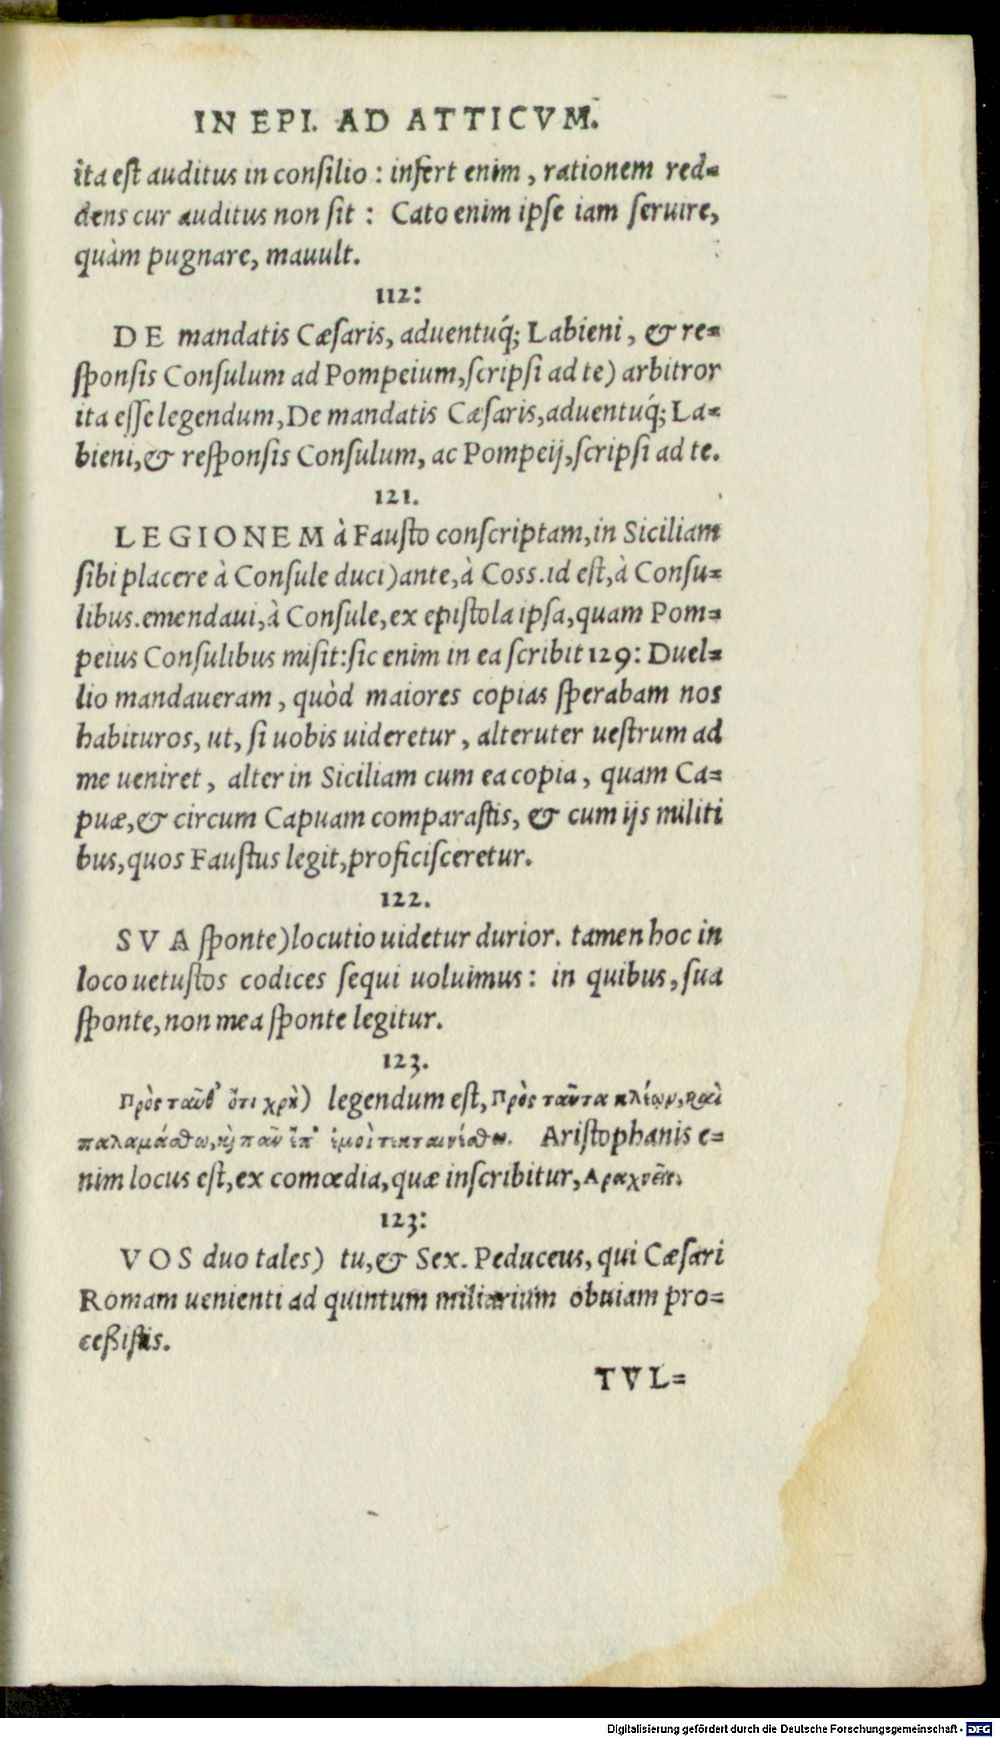 IN EPI. AD ATTICVM.
ita est auditus in consilio : infert enim , rationem red=
dens cur auditus non sit : Cato enim ipse iam seruire,
quàm pugnare, mauult.
112:
DE mandatis Cæsaris, aduentuq́; Labieni, & re=
sponsis Consulum ad Pompeium, scripsi ad te) arbitror
ita esse legendum, De mandatis Cæsaris, aduentuq́; La=
bieni, & responsis Consulum, ac Pompeij, scripsi ad te.
121.
LEGIONEM à Fausto conscriptam, in Siciliam
sibi placere à Consule duci) ante, à Coss. id est, à Consu=
libus. emendaui, à Consule, ex epistola ipsa, quam Pom=
peius Consulibus misit: sic enim in ea scribit 129: Duel=
lio mandaueram, quòd maiores copias sperabam nos
habituros, ut, si uobis uideretur, alteruter uestrum ad
me ueniret, alter in Siciliam cum ea copia, quam Ca=
puæ, & circum Capuam comparastis, & cum ijs militi
bus, quos Faustus legit, proficisceretur.
122.
SVA sponte) locutio uidetur durior. tamen hoc in
loco uetustos codices sequi uoluimus: in quibus, sua
sponte, non mea sponte legitur.
123.
Πρὸς ταῦθ' ὅτι χρὴ) legendum est, Πρὸς ταῦτα κλέων, καὶ
παλαμάσθω, καὶ πᾶν ἐπ' ἐμοὶ τεκταινέσθω. Aristophanis e=
nim locus est, ex comœdia, quæ inscribitur, Αραχνεῖς.
123:
VOS duo tales) tu, & Sex. Peduceus, qui Cæsari
Romam uenienti ad quintum miliarium obuiam pro=
ceßistis.
TVL=
Digitalisierung gefördert durch die Deutsche Forschungsgemeinschaft - DFG